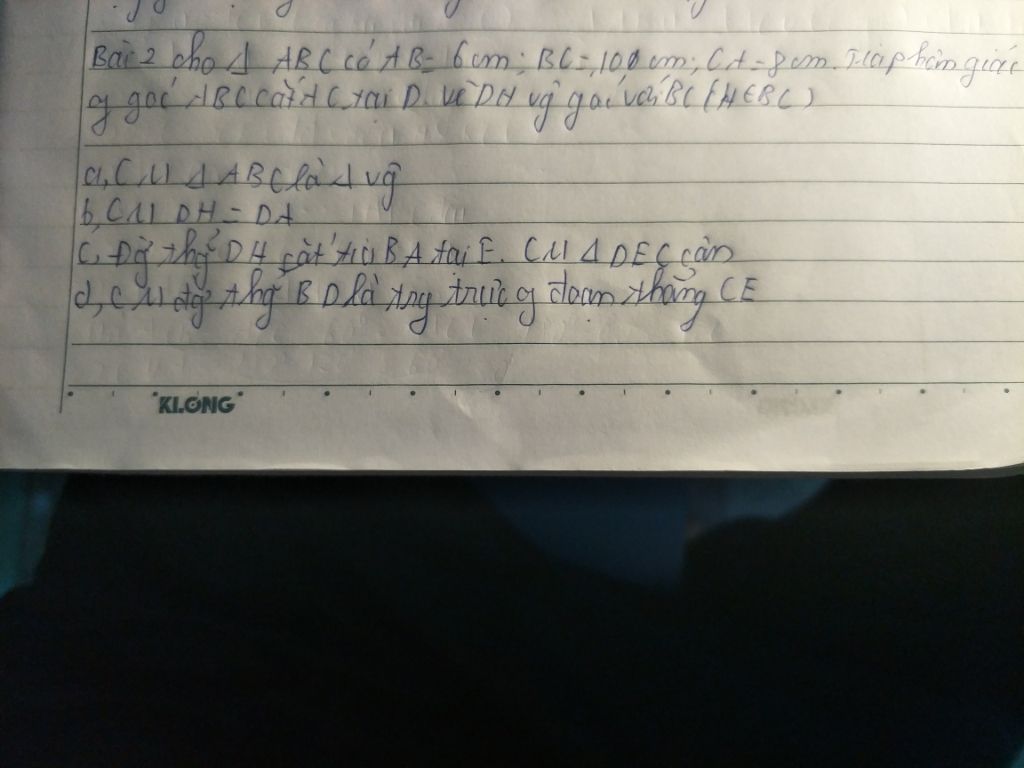 Bài 2 cho Δ ABC có AB = 6 cm; BC = 100 cm; CA = 8 cm. Tia phân giác
góc ABC cắt AC tại D. vẽ DH vg góc với BC (H∈BC)
a, CM Δ ABC là Δ vg
b, CM DH = DA
c, Đg thg DH cắt tia BA tại E. CM Δ DEC cân
d, CM đg thg BD là trg trực g đoạn thẳng CE
KLONG